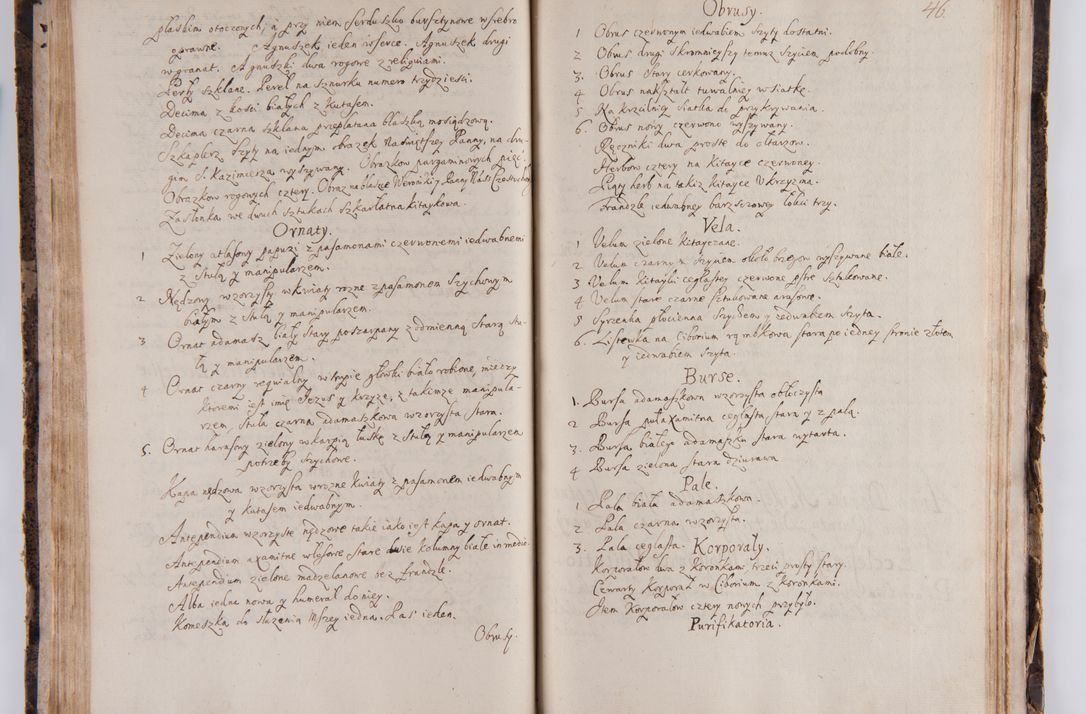 płaskim otoczonych, a przy niem serduszko bursztynowe w srebro
oprawne. Agnuszek ieden w sferce. Agnuszek drugi
w granat. Agnuszki dwa rogowe z reliquiami.
Perły szklane. Pereł na sznurku numero trzydzieści.
Decima z kości białych z kutasem.
Decima czarna szklana przeplatana blaszką mosiądzową.
Szkaplerz szyty na iednym obrazek Naświętszey Panny, na dru-
gim S. Kazimierza wyszywany. Obrazkow pargaminowych pięć
Obrazkow rogowych cztery. Obraz na blasze Weroniki y Panny Naś: Częstochows:
Zasłonka we dwuch sztukach szkarłatna kitaykowa.
Ornaty.
1 Zielony atłasowy papuzi z pasamonami czerwonemi iedwabnemi
z stułą y manipularzem.
2 Nędzony wzorzysty w kwiaty rozne z pasamonem szychowym
białym z stułą y manipularzem.
3 Ornat adamasz: biały stary poszarpany z odmienną starą stu-
łą y manipularzem.
4 Ornat czarny requialny w trupie głowki biało robione, między
ktoremi jest imię Jezus y krzyże, z takimże manipula-
rzem, stuła czarna adamaszkowa wzorzysta stara.
5. Ornat harasowy zielony w karpią łuskę z stułą y manipularzem
potrzeby szychowe.
Kapa nędzowa wzorzysta w rozne kwiaty z pasamonem iedwabnym
y kutasem iedwabnym.
Antependium wzorzyste nędzowe takie iako iest kapa y ornat.
Antependium axamitne włosowe stare dwie kolumny białe in medio.
Antependium zielone madzelanowe bez frandzle.
Alba iedna nowa y humerał do niey.
Komeszka do służenia Mszey iedna. Pas ieden.
Obrusy.
46.
Obrusy.
1 Obrus czerwonym iedwabiem szyty dostatni.
2 Obrus drugi skromnieyszy temuż szyciem podobny.
3. Obrus stary cerkowany.
4 Obrus nakształt tuwalniey w siatkę.
5 Na krzcilnicę siatka do przykrywania.
6. Obrus nowy czerwono wyszywany.
Ręczniki dwa proste do ołtarzow.
Herbow cztery na kitayce czerwoney.
Piąty herb na takiż kitayce V krzyzma.
Frandzle iedwabney barszczowey łokci trzy.
Vela.
1 Velum zielone kitayczane.
2 Velum czarny z szyciem około brzegow wyszywane białe.
3 Velum kitayki ceglastey czerwone pstre sztukowane.
4 Velum stare czarne sztukowane arasowe.
5 Syrzenka płocienna szychem y iedwabiem szyta.
6. Listewka na Ciborium rąmbkowa stara po iedney stronie złotem
y iedwabiem szyta.
Burse.
1. Bursa adamaszkowa wzorzysta obłoczysta
2 Bursa pułaxamitna ceglasta stara y z palą.
3. Bursa białego adamaszku stara wytarta.
4 Bursa zielona stara dziurawa
Pale.
1 Pala biała adamaszkowa.
2 Pala czarna wzorzysta.
3. Pala ceglasta. Korporały.
Korporałow dwa z koronkam, trzeci prosty stary.
Czwarty Korporał w Ciborium z koronkami.
Item Korporałow cztery nowych przybyło.
Purifikatoria.